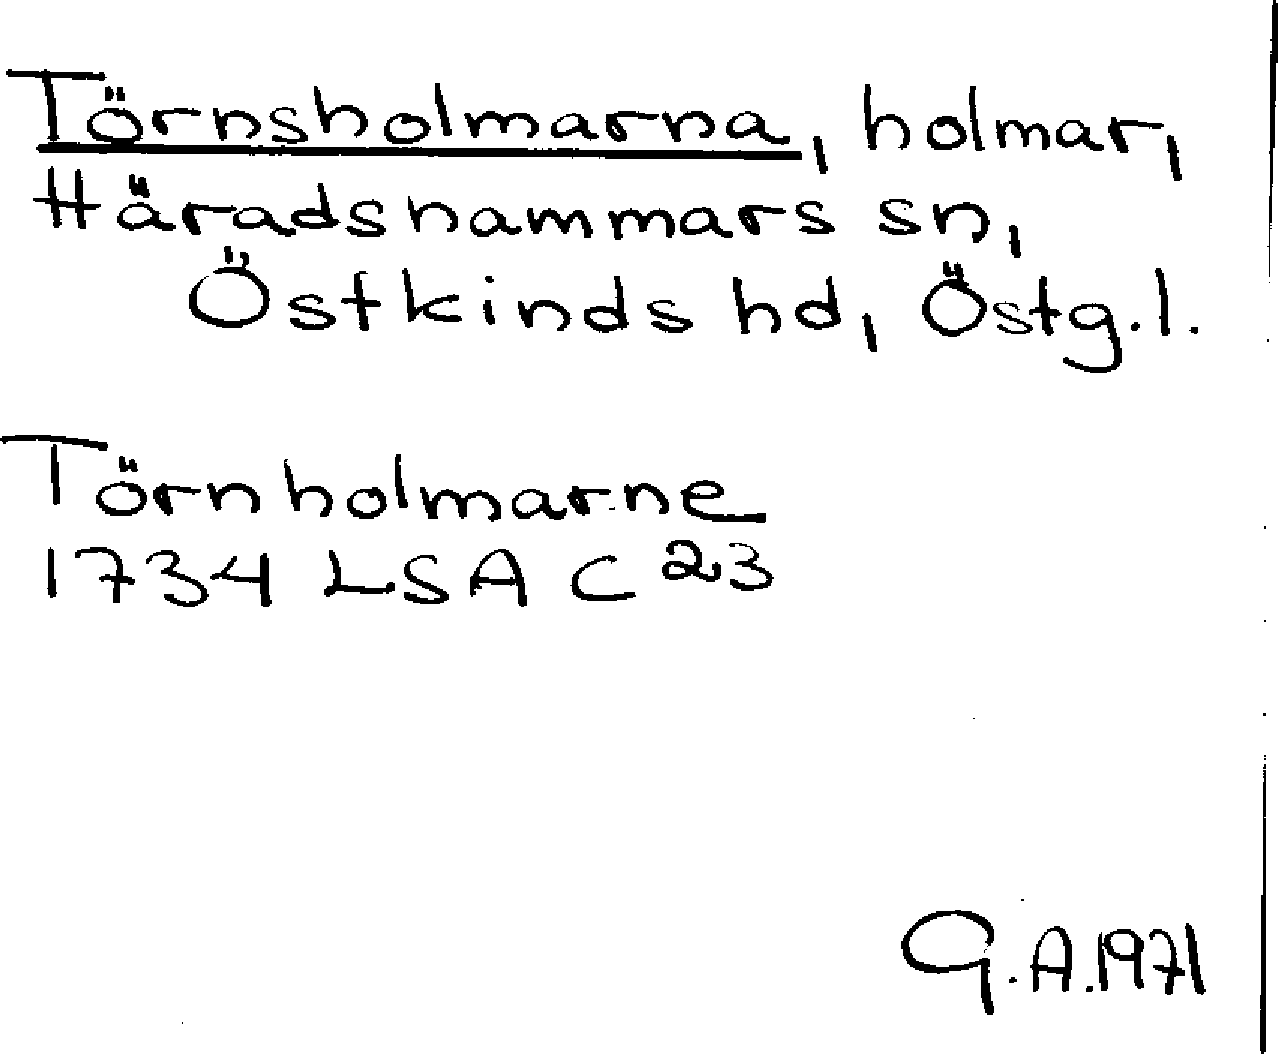 Törnsholmarna, holmar,
Häradshammars sn,
Östkinds hd, Östg.l.
Törnholmarne
1734 LSA C 23
G.A.1971